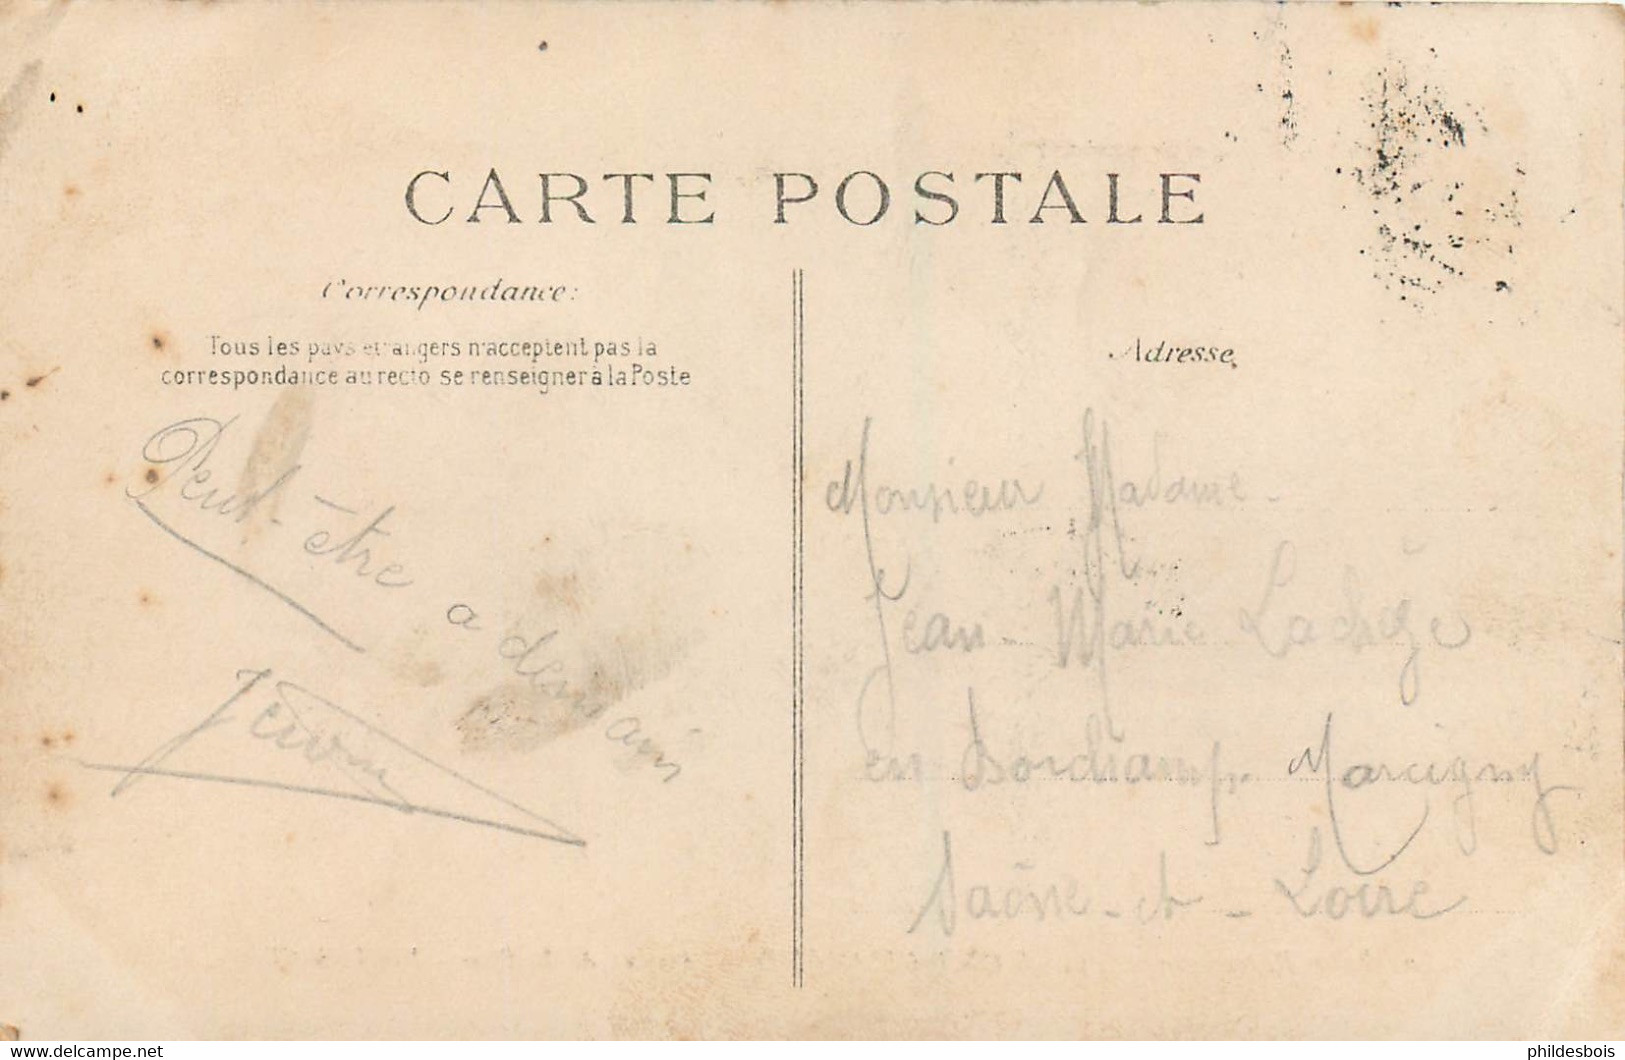 CARTE POSTALE
Correspondance:
Tous les pays étrangers n'acceptent pas la
correspondance au recto se renseigner à la Poste
Peut-être a demain
Adresse
Monsieur Madame
Jean-Marie
en Borchamp. Marcigny
Saône-et-Loire
www.delcampe.net
phildesbois